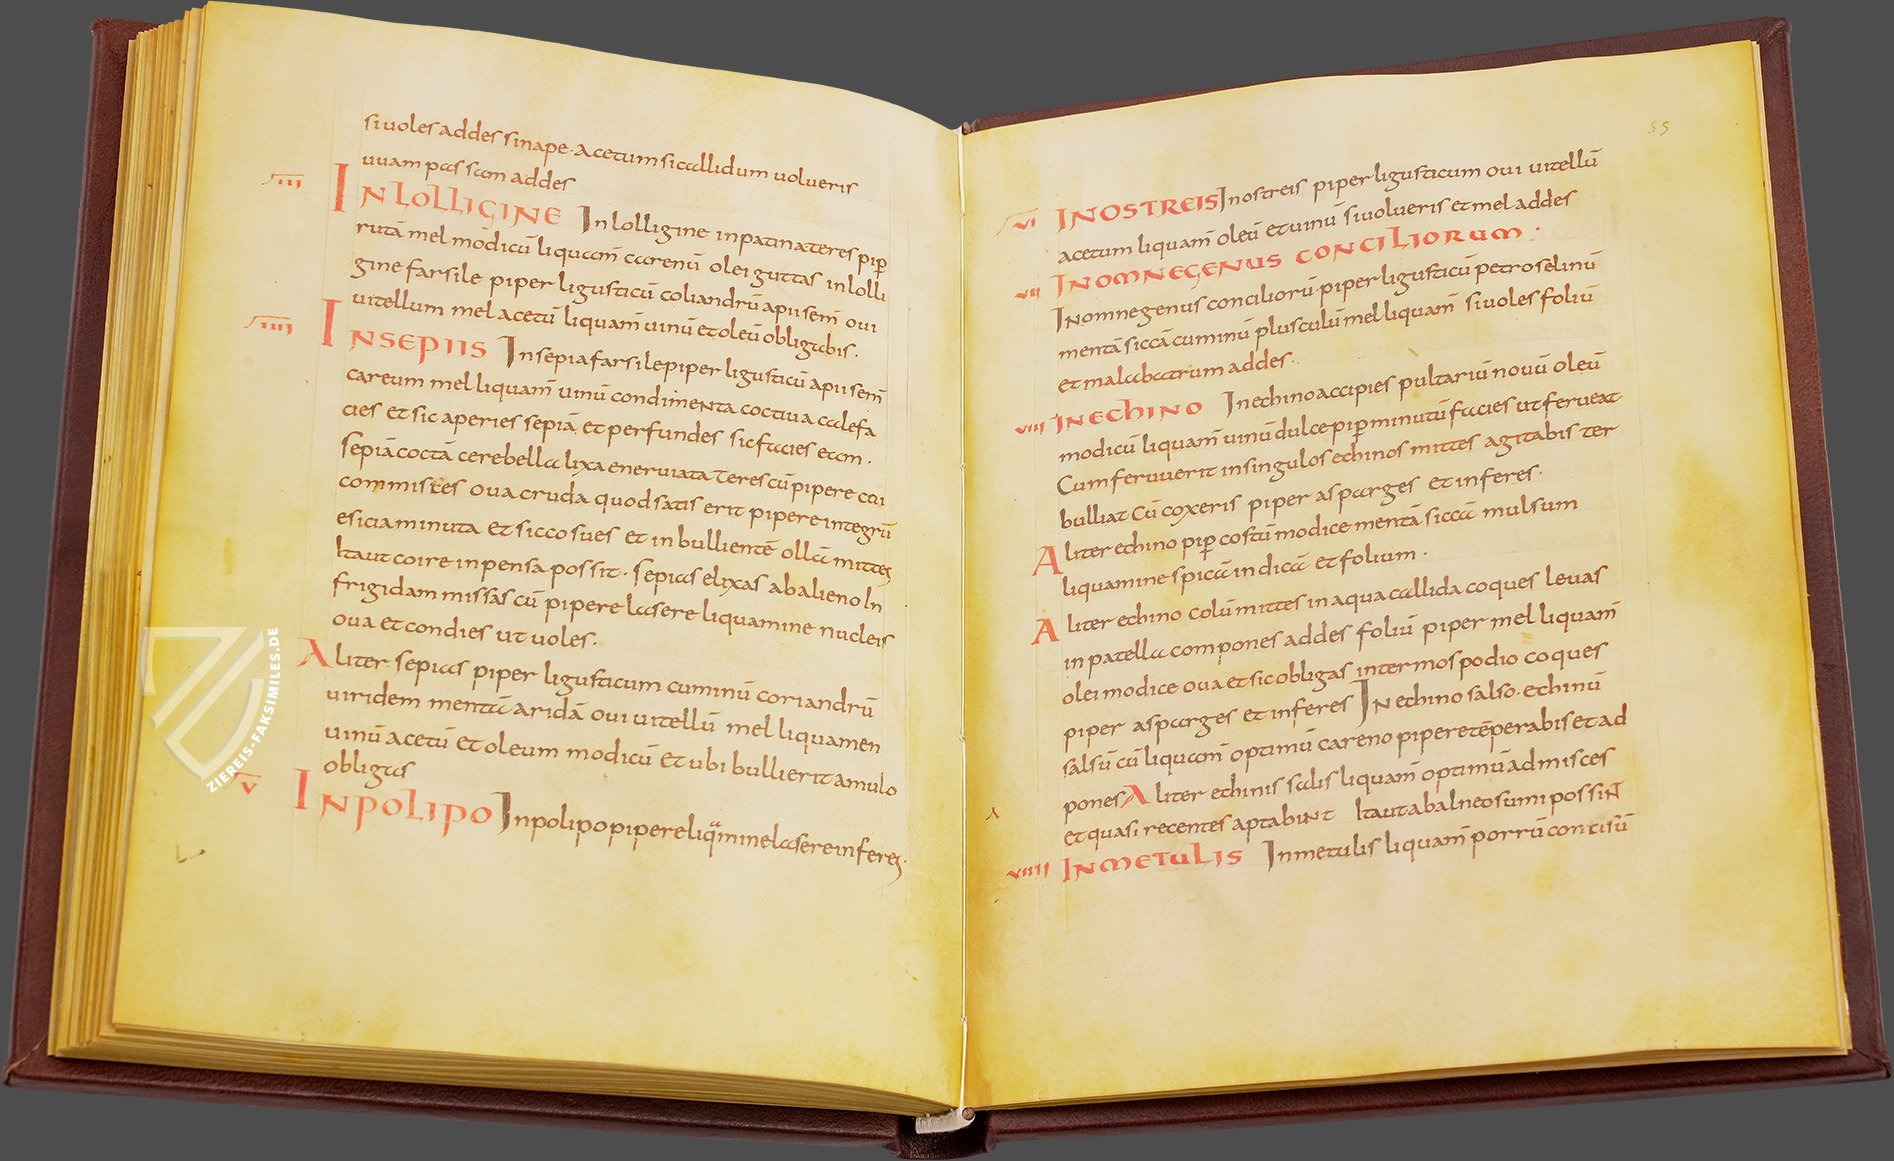 siuoles addes sinape· acetum sicallidum uolueris
uuam passam addes
III IN LOLLIGINE In lolligine inpatina teres pip̄
rutā mel modicū liquam̄ carenū olei guttas in lolli
gine farsile piper ligusticū coliandrū apii sem̄ oui
uitellum mel acetū liquam̄ uinū et oleū obligabis·
IIII IN SEPIIS In sepia farsile piper ligusticū apii sem̄
careum mel liquam̄ uinū condimenta coctiua calefa
cies et sic aperies sepiā et perfundes sic facies eam·
sepiā coctā cerebella lixa eneruiata teres cū pipere cui
commisces oua cruda quod satis erit pipere integrū
esicia minuta et sicco sues et in bullientē ollā mittes
Ita ut coire inpensa possit· sepias elixas ab alieno In
frigidam missas cū pipere lasere liquamine nucleis
oua et condies ut uoles·
Aliter sepias piper ligusticum cuminū coriandrū
uiridem mentā aridā oui uitellū mel liquamen
uinū acetū et oleum modicū et ubi bullierit amulo
obligas
V IN POLIPO In polipo pipere liq̄mine lasere inferes·
55
VI IN OSTREIS In ostreis piper ligusticum oui uitellū
acetum liquam̄ oleū et uinū siuolueris et mel addes
VII IN OMNE GENUS CONCILIORUM·
IN omne genus conciliorū piper ligusticū petroselinū
mentā siccā cuminū plusculū mel liquam̄ siuoles foliū
et malabatrum addes·
VIII IN ECHINO In echino accipies pultariū nouū oleū
modicū liquam̄ uinū dulce pip̄ minutū facies ut ferueat
Cum feruuerit in singulos echinos mittes agitabis ter
bulliat Cū coxeris piper asparges et inferes·
Aliter echino pip̄ costū modice mentā siccā mulsum
liquamine spicā indicā et folium·
Aliter echino colū mittes in aqua callida coques leuas
in patella compones addes foliū piper mel liquam̄
olei modice oua et sic obligas in termospodio coques
piper asparges et inferes IN echino salso· echinū
salsū cū liquam̄ optimū careno pipere tēperabis et ad
pones Aliter echinis salis liquam̄ optimū admisces
et quasi recentes aptabunt Ita ut a balneo sumi possin̄t
VIIII IN METULIS In metulis liquam̄ porrū concisū
ZIEREIS-FAKSIMILES.DE